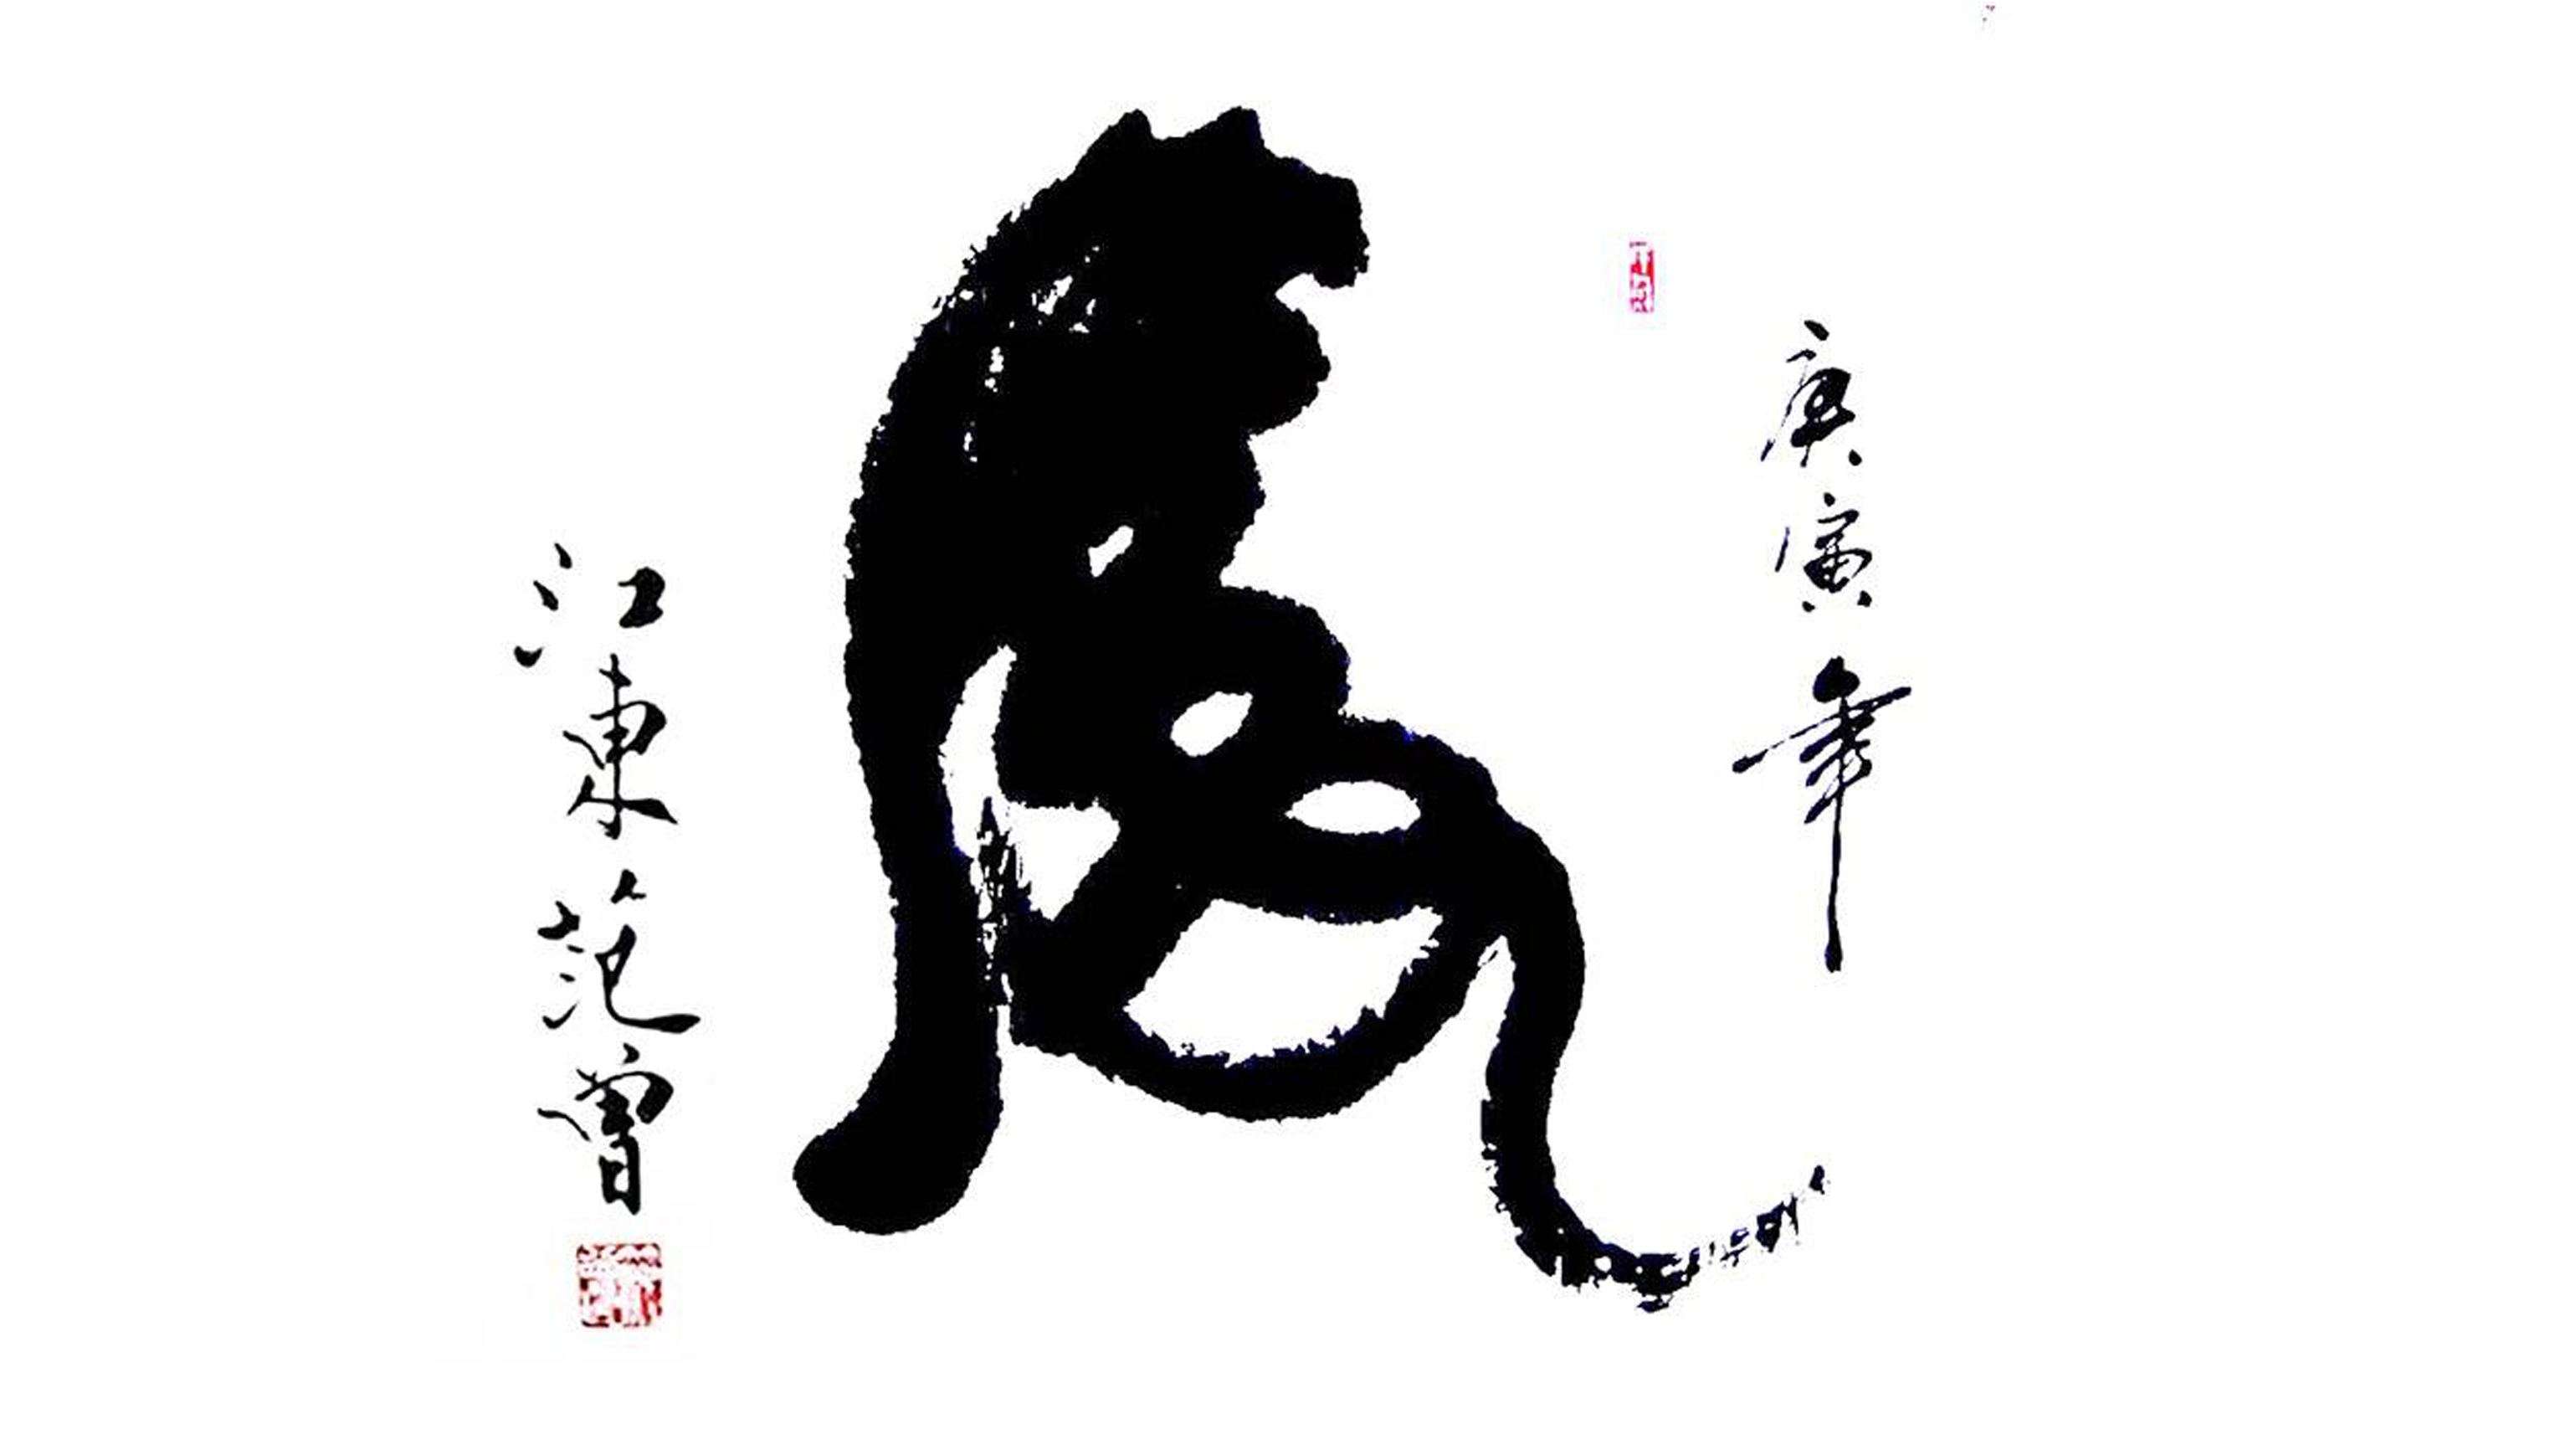 庚寅年
虎
江東范曾